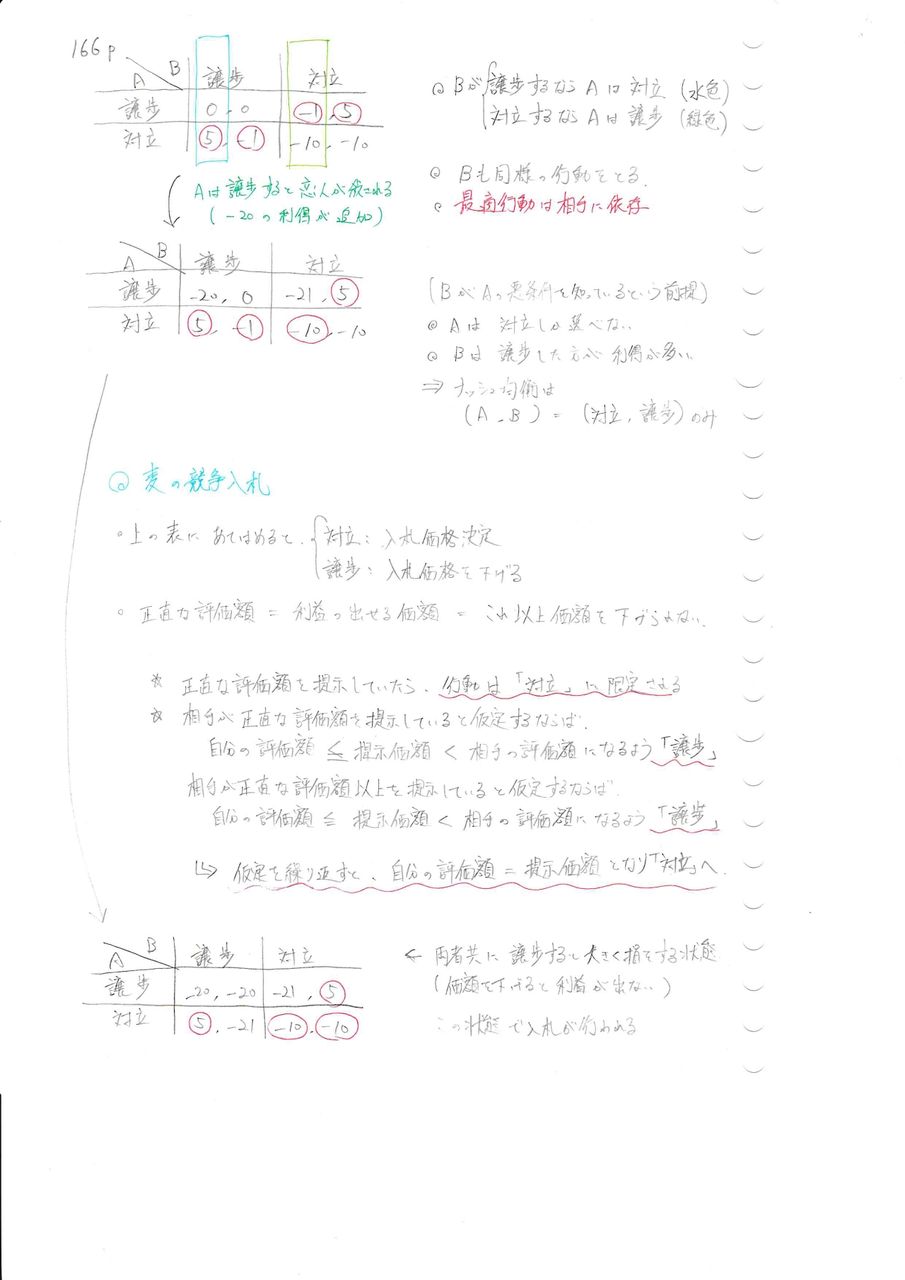 166p
A B 譲歩 対立
譲歩 0, 0 -1, 5
対立 5, -1 -10, -10
◎ Bが 譲歩するなら Aは 対立 (水色)
対立するなら Aは 譲歩 (緑色)
Aは譲歩すると恋人が殺される
(-20の利得が追加)
◎ Bも同様の行動をとる.
◎ 最適行動は相手に依存
A B 譲歩 対立
譲歩 -20, 0 -21, 5
対立 5, -1 -10, -10
(BがAの悪条件を知っているという前提)
◎ Aは 対立しか選べない
◎ Bは 譲歩した方が利得が多い
⇒ ナッシュ均衡は
(A, B) = (対立, 譲歩)のみ
◎ 麦の競争入札
○上の表にあてはめると、 対立: 入札価格決定
譲歩: 入札価格を下げる
○ 正直な評価額 = 利益の出せる価額 = これ以上価額を下げられない.
* 正直な評価額を提示していたら、行動は「対立」に限定される
* 相手が正直な評価額を提示していると仮定するならば.
自分の評価額 ≦ 提示価額 < 相手の評価額になるよう「譲歩」
相手が正直な評価額以上を提示していると仮定するならば.
自分の評価額 ≦ 提示価額 < 相手の評価額になるよう「譲歩」
↳ 仮定を繰り返すと、自分の評価額 = 提示価額となり「対立」へ.
A B 譲歩 対立
譲歩 -20, -20 -21, 5
対立 5, -21 -10, -10
← 両者共に譲歩すると大きく損をする状態
(価額を下げると利益が出ない)
この状態で入札が行われる